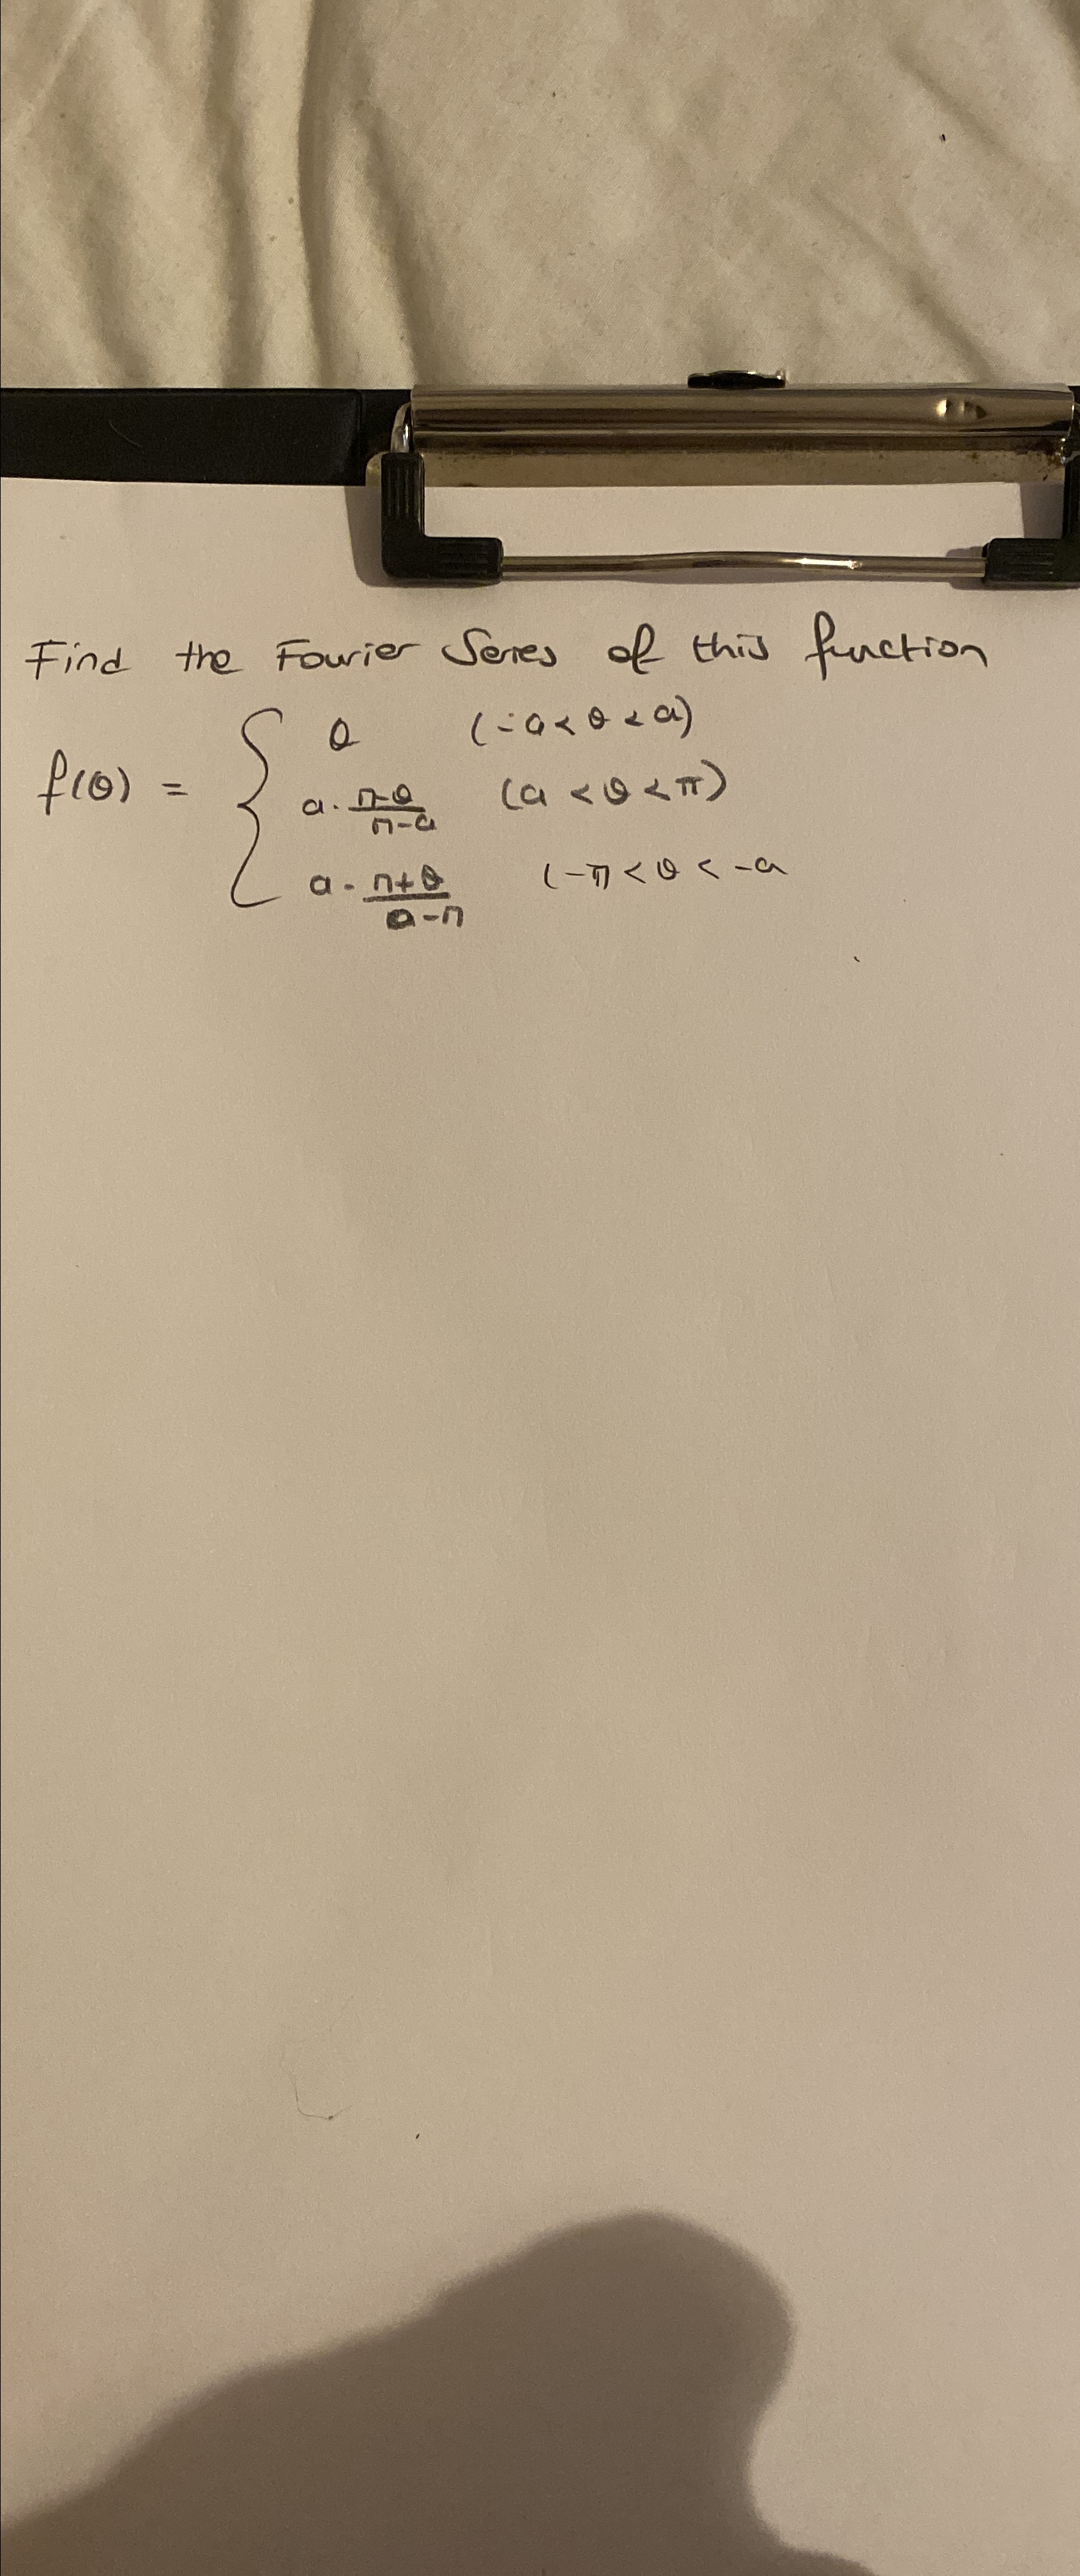 Find the Fourier Series of this function
f(θ) = { θ (-a < θ < a)
a · π-θ/π-a (a < θ < π)
a · π+θ/a-π (-π < θ < -a